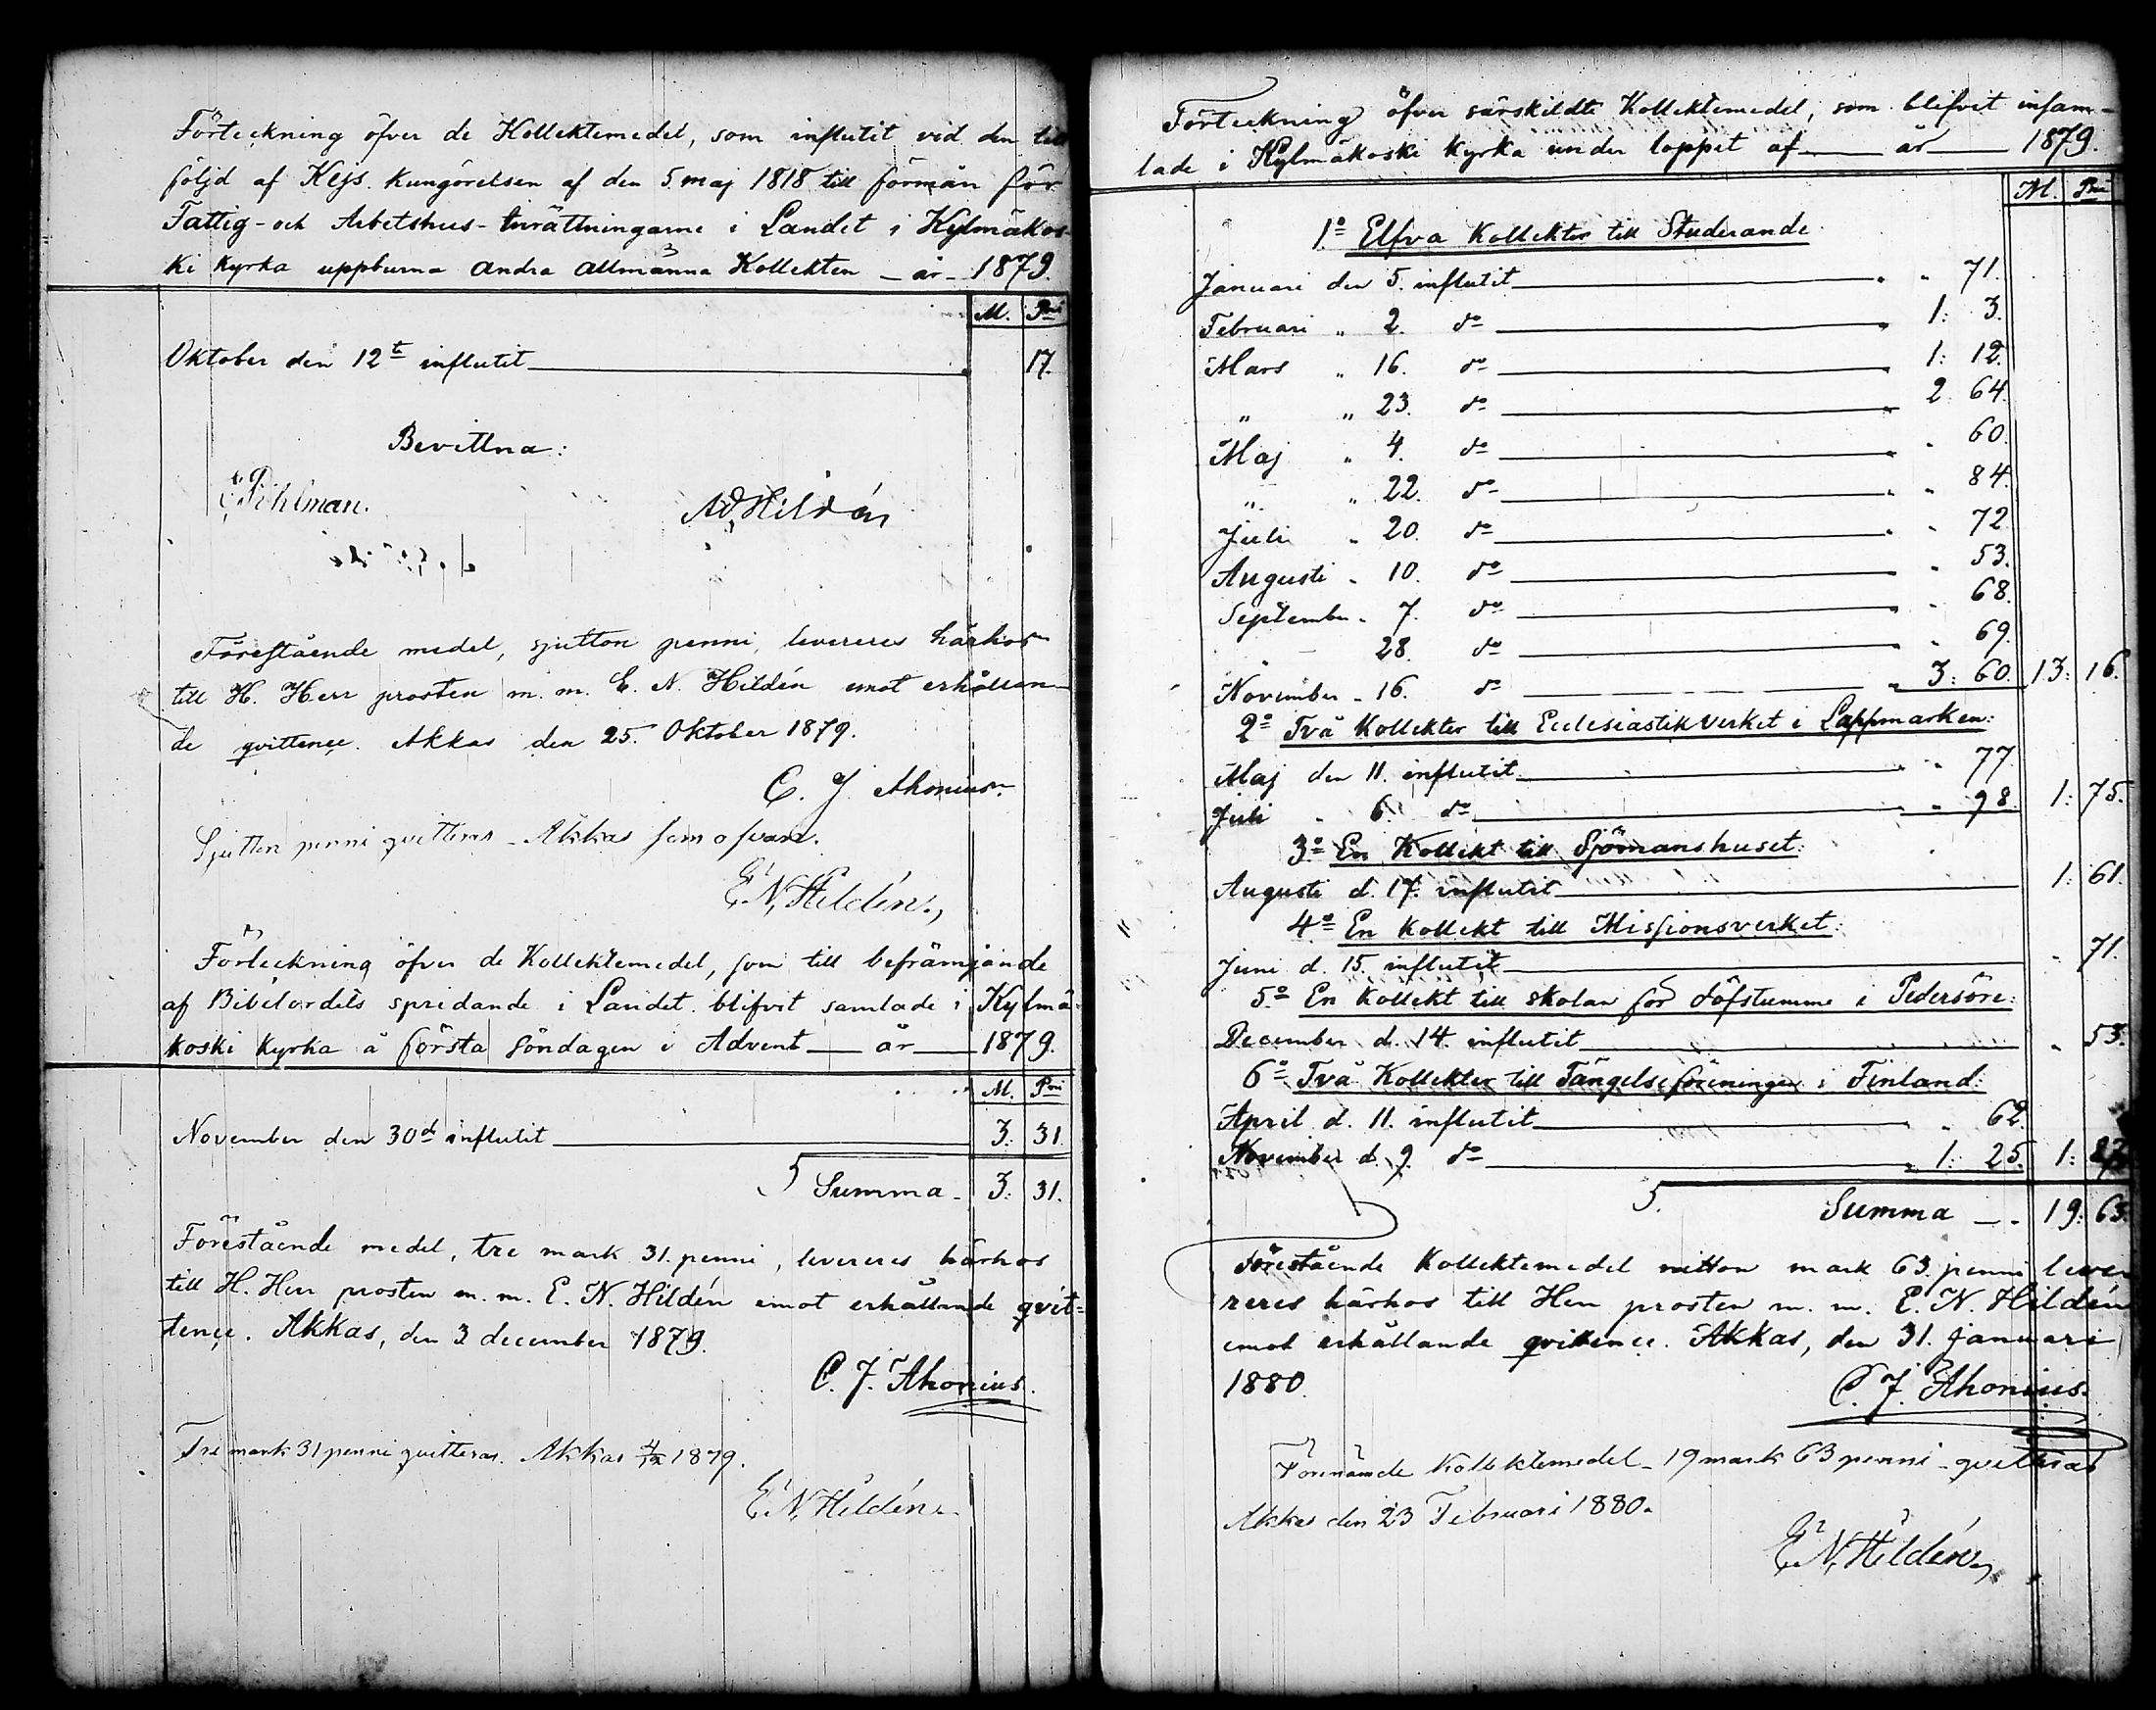 Förteckning öfver de Kollektemedel, som influtit vid den till
följd af Kejs. Kungörelsen af den 5. maj 1818 till förmån för
Fattig- och Arbetshus-Inrättningarne i Landet i Kylmäkos-
ki Kyrka uppburna andra allmänna Kollekten _ år _ 1879.
M. P:ni
Oktober den 12te influtit 17.
Bevittna:
Pihlman. AdHildén
Förestående medel, sjutton penni, levereres härhos
till H. Herr prosten m. m. E. N. Hildén emot erhållan-
de qvittence. Akkas den 25. Oktober 1879.
C. J. Ahonius.
Sjutton penni qvitteras _ Akkas som ofvan.
E. N. Hildén.
Förteckning öfver de Kollektemedel, som till befrämjande
af Bibelordets spridande i Landet blifvit samlade i Kylmä-
koski Kyrka å första söndagen i Advent _ år _ 1879.
M. P:ni
November den 30de influtit 3: 31
Summa _ 3: 31.
Förestående medel, tre mark 31. penni, levereres härhos
till H. Herr prosten m. m. E. N. Hildén emot erhållande qvit=
tence. Akkas, den 3 december 1879.
C. J. Ahonius.
Tre mark 31 penni qvitteras. Akkas 4/12 1879.
E. N. Hildén.
Förteckning öfver särskildte Kollektemedel, som blifvit insam-
lade i Kylmäkoski Kyrka under loppet af _ år _ 1879.
M. P:ni
1:o Elfva Kollekter till Studerande.
Januari den 5. influtit " " 71.
Februari " 2. d:o " 1: 3.
Mars " 16. d:o " 1: 12.
" " 23. d:o " 2 64.
Maj " 4. d:o " " 60.
" " 22. d:o " " 84.
Juli " 20. d:o " " 72
Augusti " 10. d:o " " 53.
September " 7. d:o " " 68.
" _ 28. d:o " " 69.
November " 16. d:o " 3: 60. 13: 16.
2:o Två Kollekter till Ecclesiastikverket i Lappmarken:
Maj den 11. influtit " " 77.
Juli " 6. d:o " " 98. 1: 75.
3:o En Kollekt till Sjömanshuset:
Augusti d. 17. influtit 1: 61.
4:o En Kollekt till Missionsverket:
Juni d. 15. influtit " 71.
5:o En Kollekt till skolan för döfstumme i Pedersöre:
December d. 14. influtit " 53.
6:o Två Kollekter till Fängelseföreningen i Finland:
April d. 11. influtit " " 62.
November d. 9. d:o " 1: 25. 1: 87.
Summa _ . 19: 63.
Förestående Kollektemedel nitton mark 63. penni leve-
reres härhos till Herr prosten m. m. E. N. Hildén
emot erhållande qvittence. Akkas, den 31. januari
1880. C. J. Ahonius.
Förenämde Kollektemedel _ 19 mark 63 penni _ qvitteras
Akkas den 23 Februari 1880.
E. N. Hildén